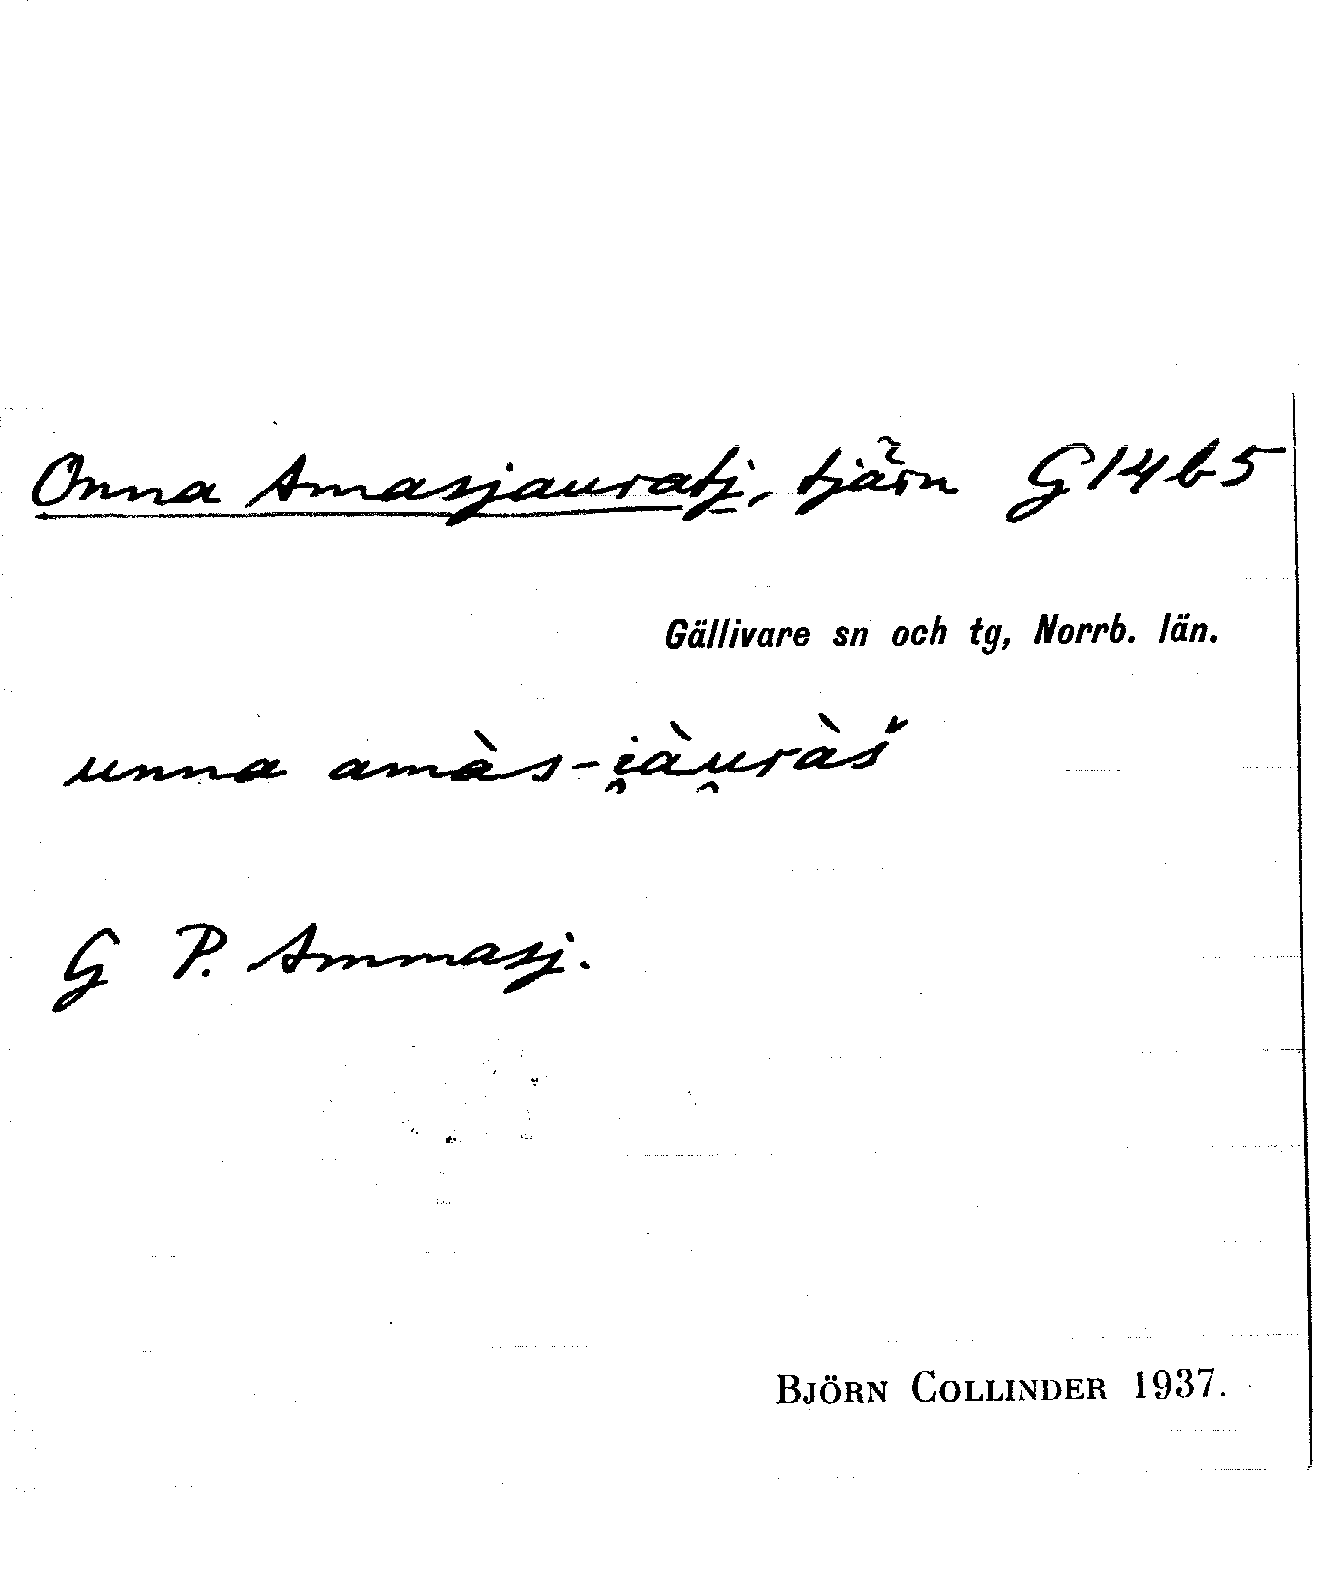 Onna Amasjauratj, tjärn G14b5
Gällivare sn och tg, Norrb. län.
unna amàs-i̯àu̯ràš
G P. Ammasj.
BJÖRN COLLINDER 1937.